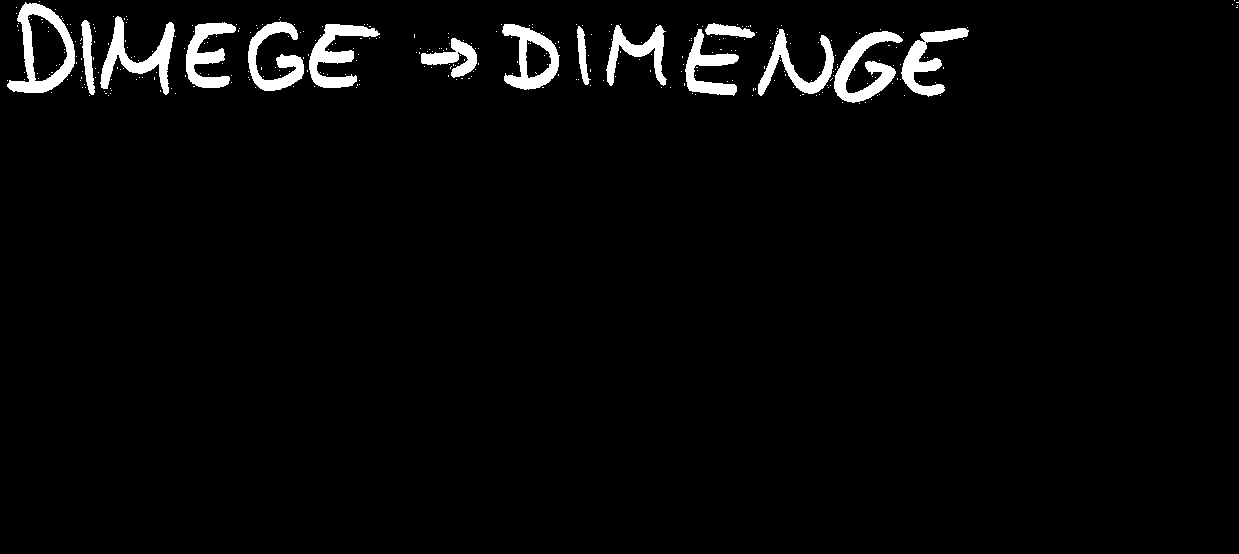 DIMEGE → DIMENGE